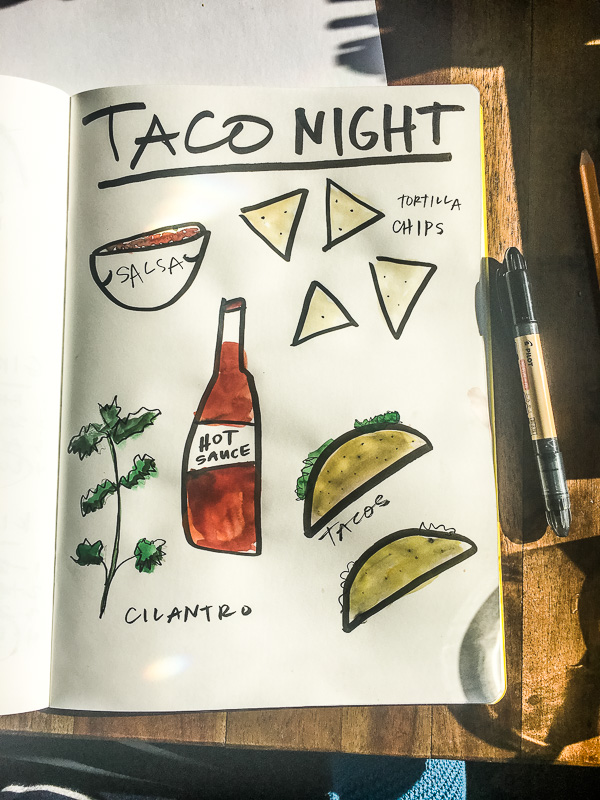 TACO NIGHT
TORTILLA
CHIPS
SALSA
HOT
SAUCE
TACOS
CILANTRO
PILOT